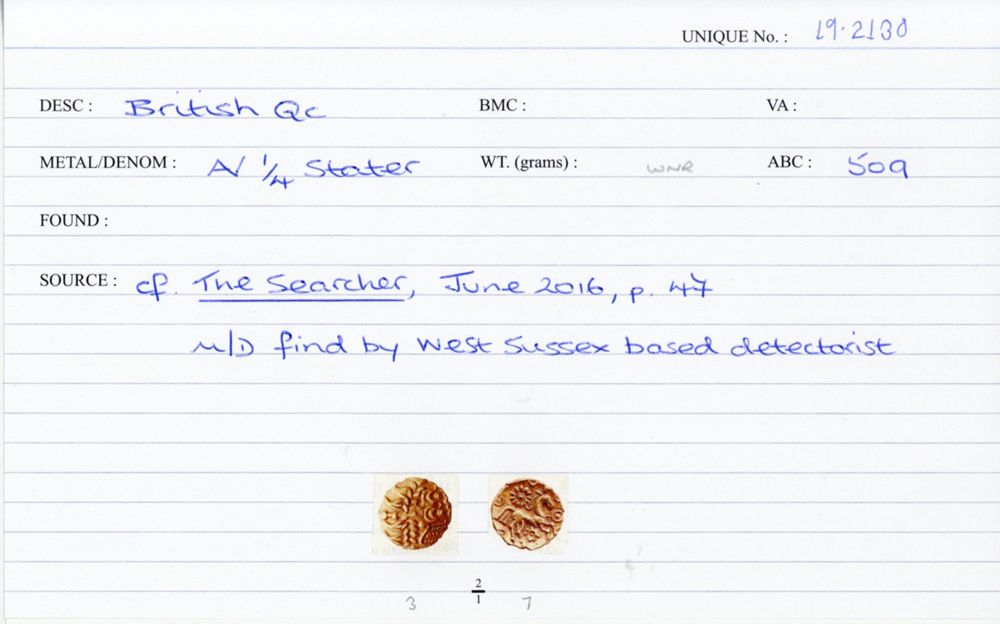 UNIQUE No. : 19.2130
DESC : British Qc BMC : VA :
METAL/DENOM : A/ 1/4 Stater WT. (grams) : WNR ABC : 509
FOUND :
SOURCE : cf. The Searcher, June 2016, p. 47
M/D find by West Sussex based detectorist
3 2/1 7